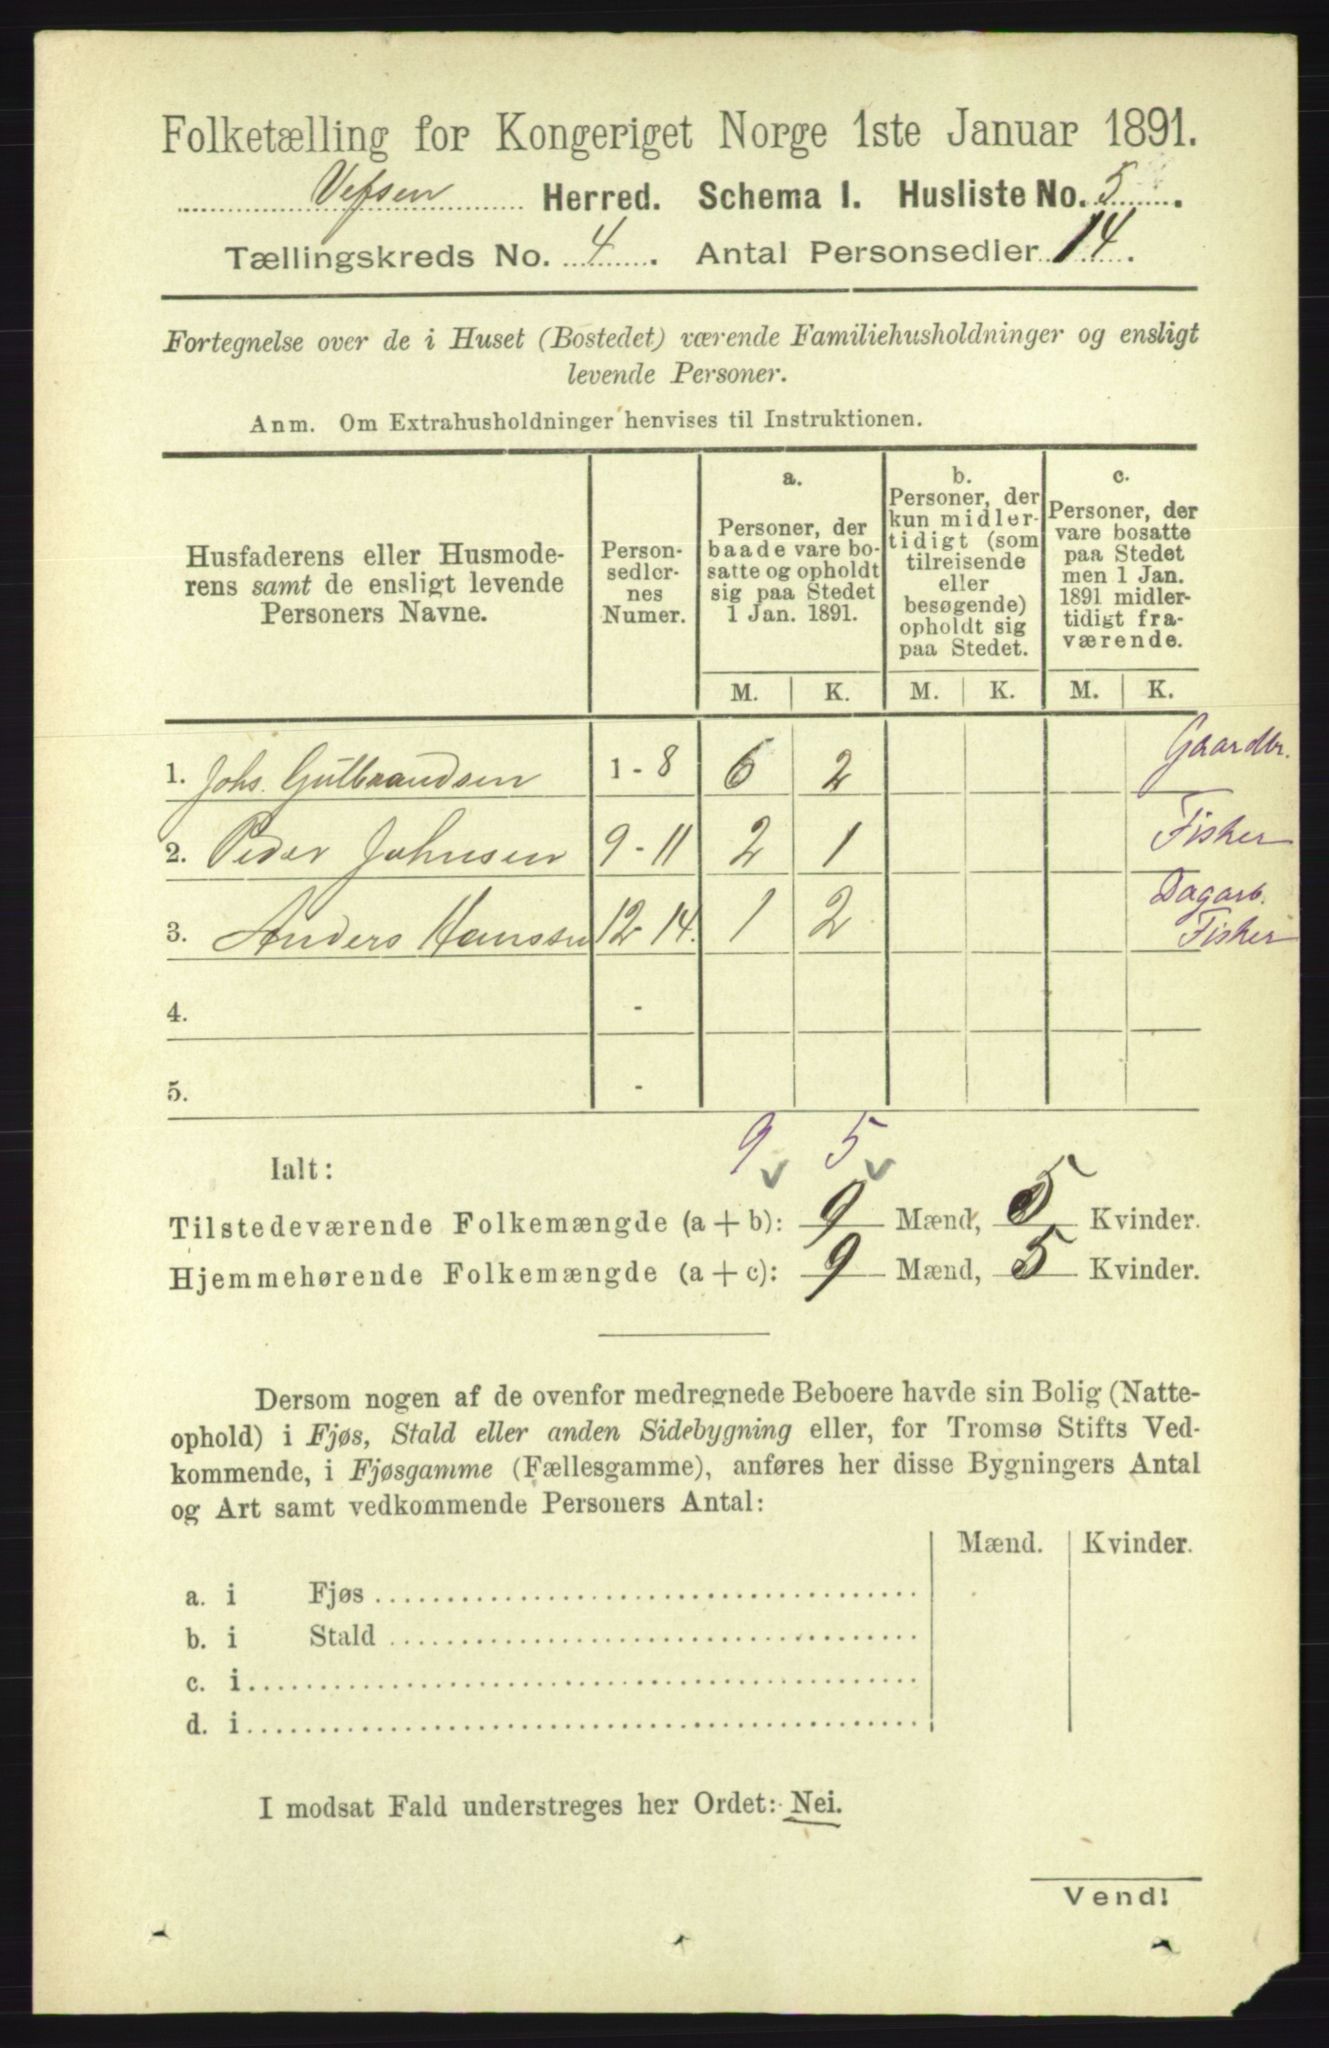 Folketælling for Kongeriget Norge 1ste Januar 1891.
Vefsen Herred. Schema I. Husliste No. 5.
Tællingskreds No. 4. Antal Personsedler 14.
Fortegnelse over de i Huset (Bostedet) værende Familiehusholdninger og ensligt
levende Personer.
Anm. Om Extrahusholdninger henvises til Instruktionen.
Husfaderens eller Husmode-
rens samt de ensligt levende
Personers Navne.
Person-
sedler-
nes
Numer.
a.
Personer, der
baade vare bo-
satte og opholdt
sig paa Stedet
1 Jan. 1891.
b.
Personer, der
kun midler-
tidigt (som
tilreisende
eller
besøgende)
opholdt sig
paa Stedet.
c.
Personer, der
vare bosatte
paa Stedet
men 1 Jan.
1891 midler-
tidigt fra-
værende.
M. K. M. K. M. K.
1. Johs. Gulbrandsen 1 - 8 6 2 Gaardbr.
2. Peder Johnsen 9 - 11 2 1 Fisker
3. Anders Hanssen 12 - 14. 1 2 Dagarb. Fisker
4. -
5. -
9 5
Ialt:
Tilstedeværende Folkemængde (a + b): 9 Mænd, 5 Kvinder.
Hjemmehørende Folkemængde (a + c): 9 Mænd, 5 Kvinder.
Dersom nogen af de ovenfor medregnede Beboere havde sin Bolig (Natte-
ophold) i Fjøs, Stald eller anden Sidebygning eller, for Tromsø Stifts Ved-
kommende, i Fjøsgamme (Fællesgamme), anføres her disse Bygningers Antal
og Art samt vedkommende Personers Antal:
Mænd. Kvinder.
a. i Fjøs
b. i Stald
c. i
d. i
I modsat Fald understreges her Ordet: Nei.
Vend!